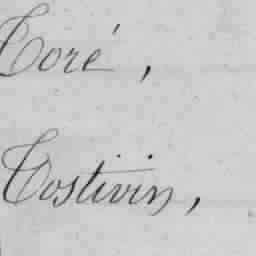 Coré,
Costivin,